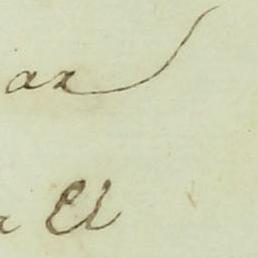 ax
El